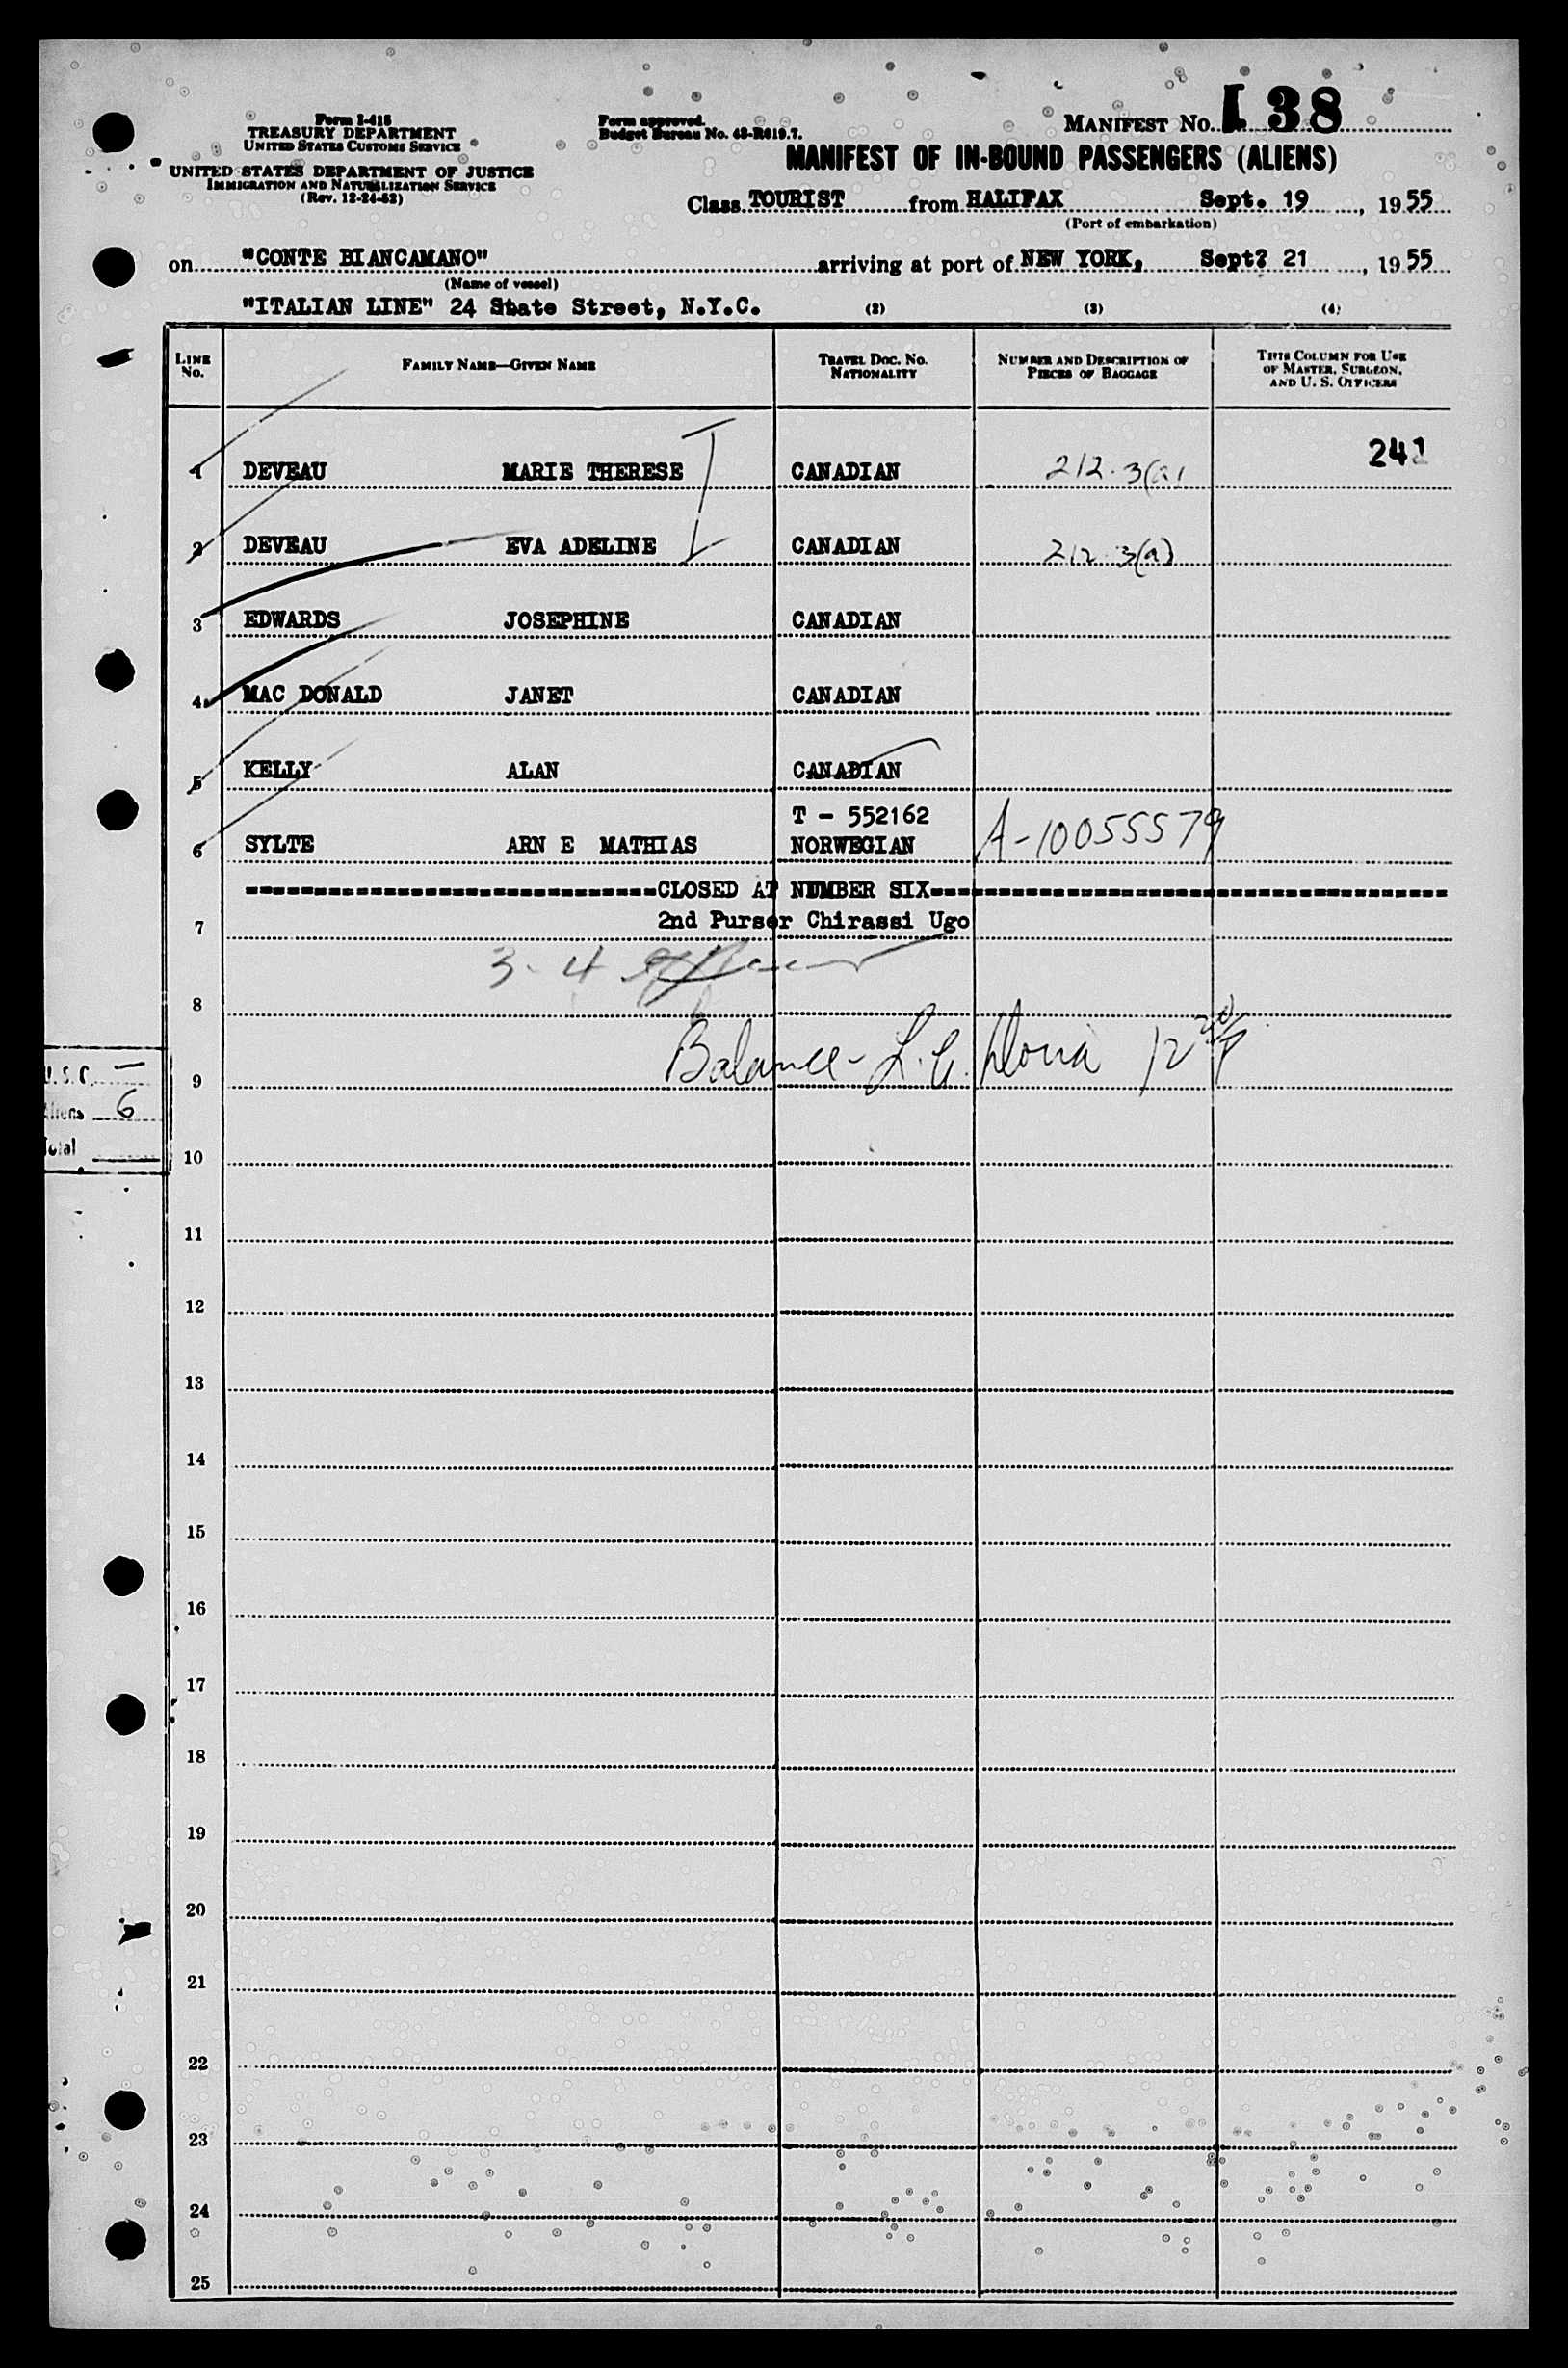 Form I-418
TREASURY DEPARTMENT
UNITED STATES CUSTOMS SERVICE
UNITED STATES DEPARTMENT OF JUSTICE
IMMIGRATION AND NATURALIZATION SERVICE
(Rev. 12-24-52)
Form approved.
Budget Bureau No. 43-R019.7.
MANIFEST NO. I 38
MANIFEST OF IN-BOUND PASSENGERS (ALIENS)
Class TOURIST from HALIFAX Sept. 19, 1955
(Port of embarkation)
on "CONTE BIANCAMANO" arriving at port of NEW YORK, Sept? 21, 1955
(Name of vessel)
"ITALIAN LINE" 24 State Street, N.Y.C. (2) (3) (4)
LINE NO. FAMILY NAME—GIVEN NAME TRAVEL DOC. NO. NATIONALITY NUMBER AND DESCRIPTION OF PIECES OF BAGGAGE THIS COLUMN FOR USE OF MASTER, SURGEON, AND U. S. OFFICERS
241
1 DEVEAU MARIE THERESE CANADIAN 212.3(a)
2 DEVEAU EVA ADELINE CANADIAN 212.3(a)
3 EDWARDS JOSEPHINE CANADIAN
4 MAC DONALD JANET CANADIAN
5 KELLY ALAN CANADIAN
T - 552162
6 SYLTE ARN E MATHIAS NORWEGIAN A-10055579
CLOSED AT NUMBER SIX
7 2nd Purser Chirassi Ugo
3-4
8
Balance - L.G. 12 20/P
U.S.C. —
9
Aliens 6
Total
10
11
12
13
14
15
16
17
18
19
20
21
22
23
24
25